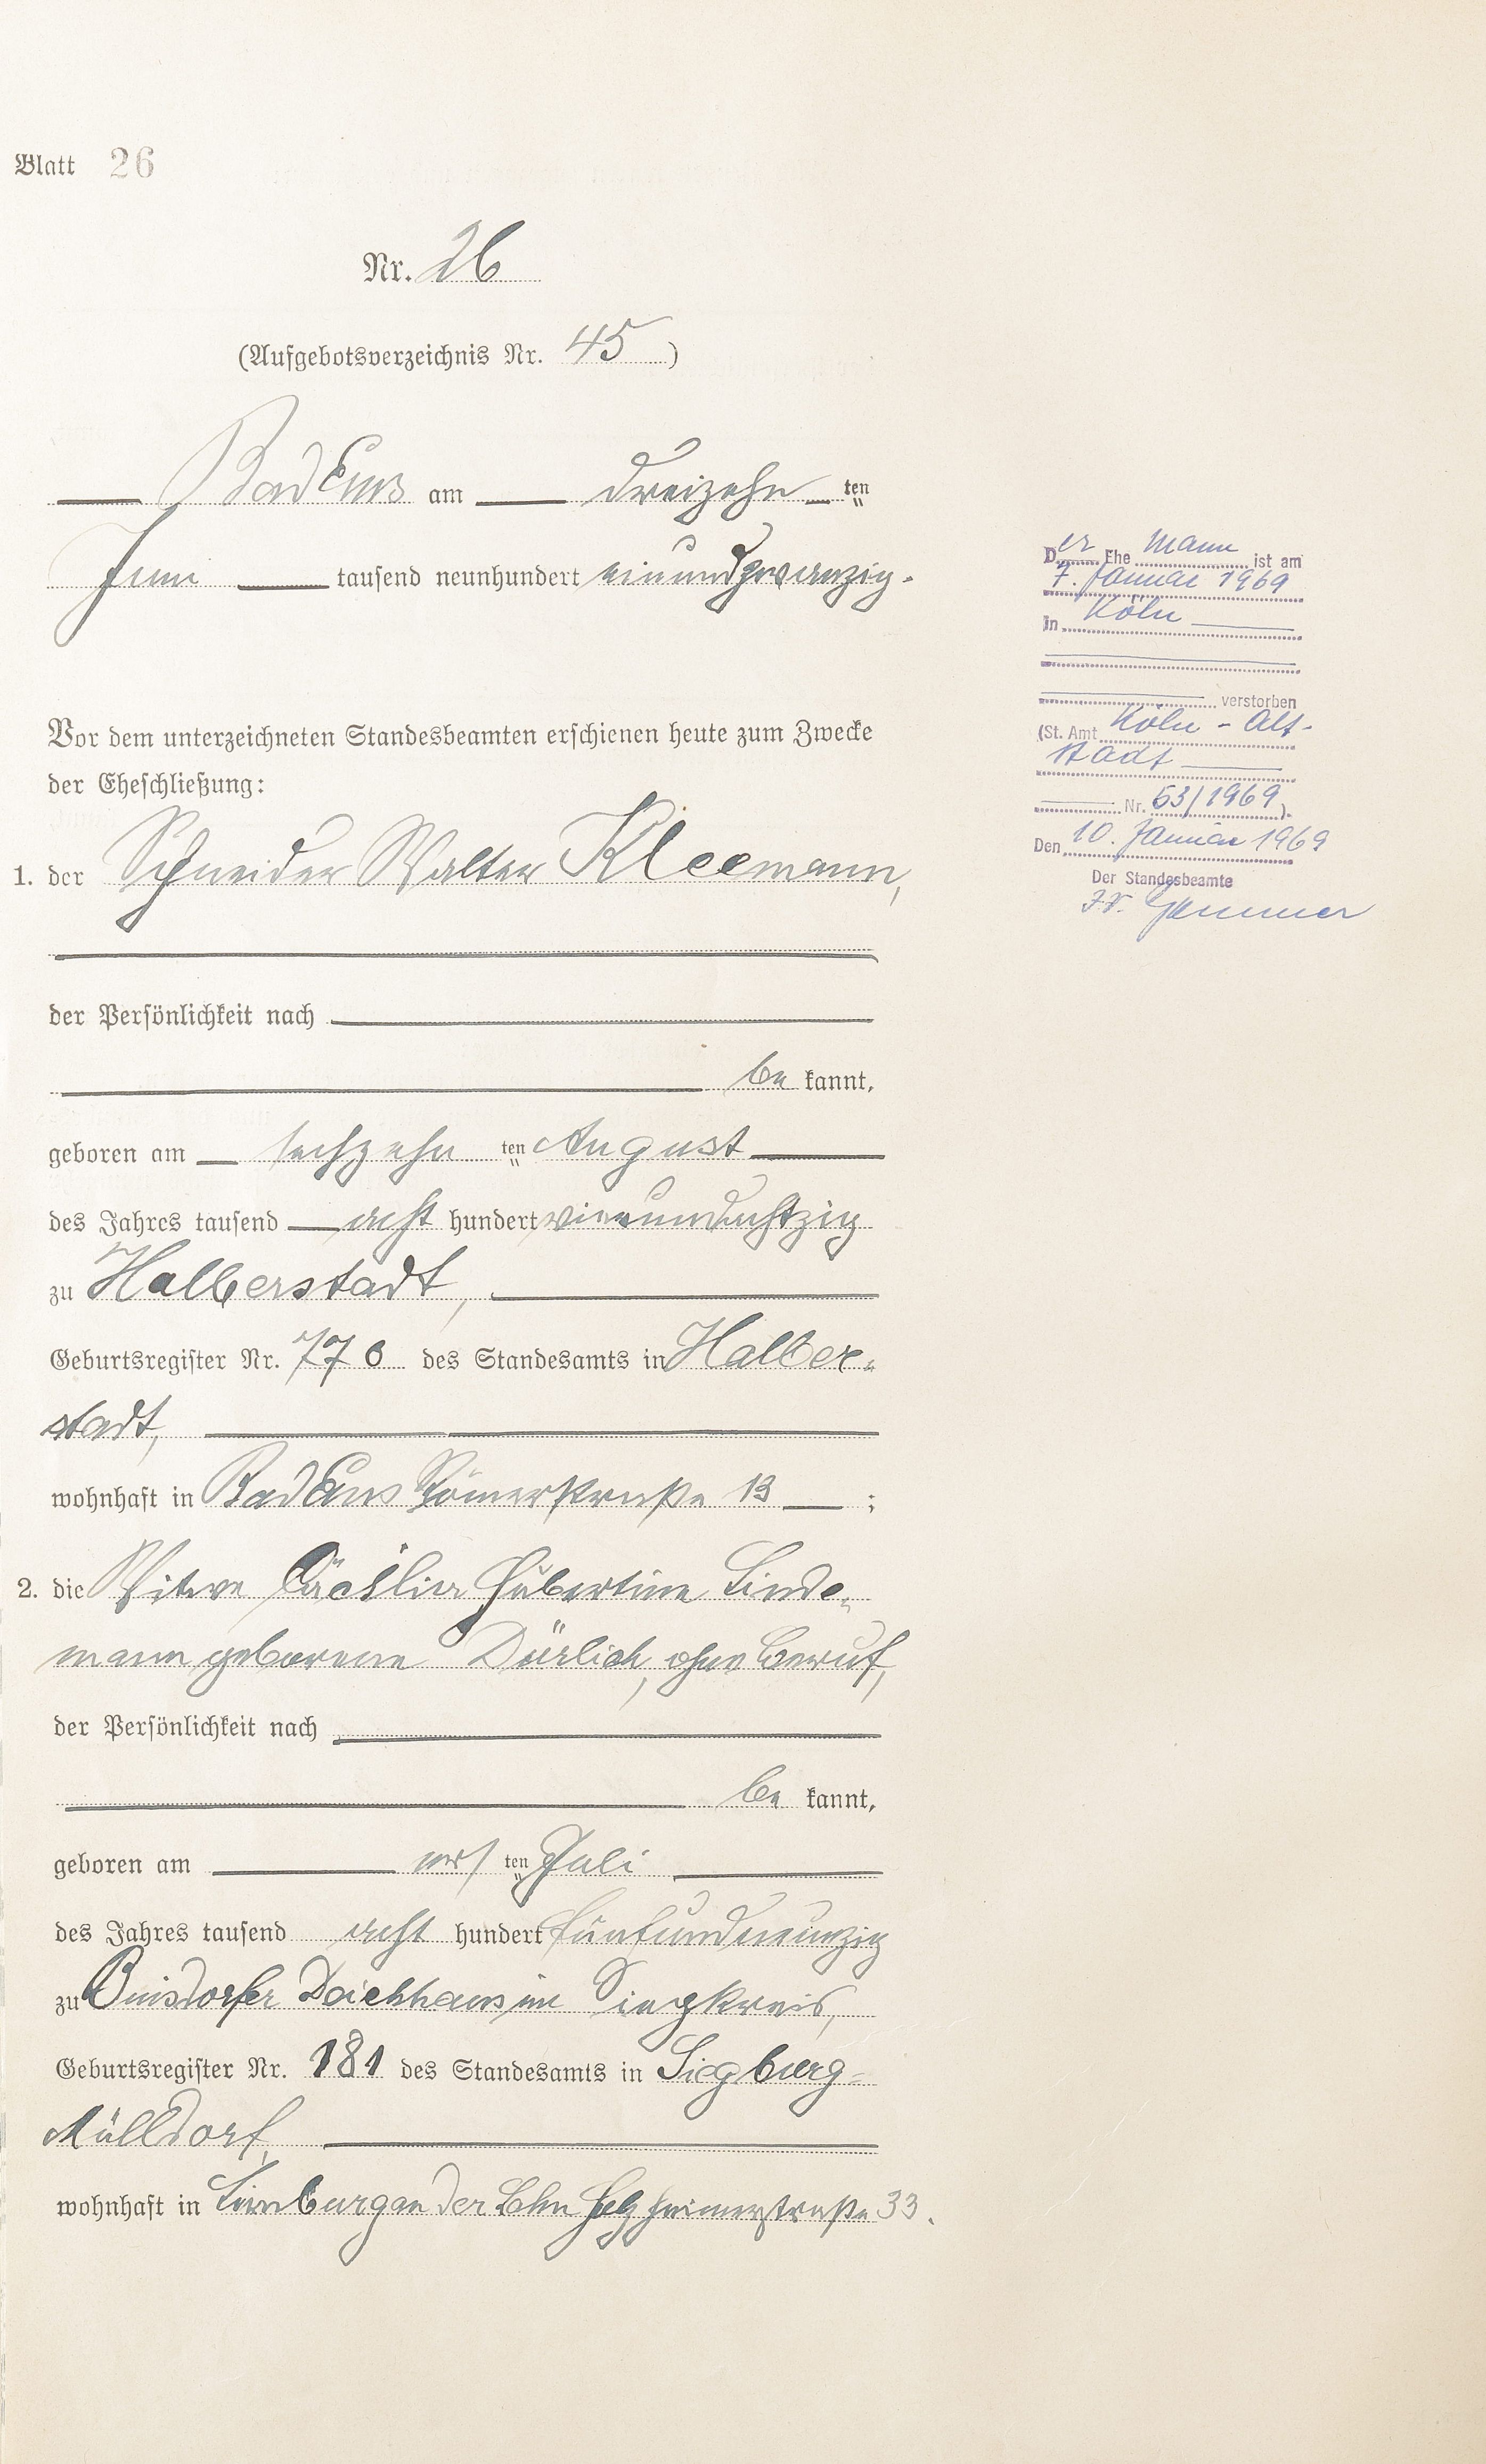 Blatt 26
Nr. 26
(Aufgebotsverzeichnis Nr. 45)
Bad Ems am dreizehn ten
Juni tausend neunhundert einundzwanzig.
Vor dem unterzeichneten Standesbeamten erschienen heute zum Zwecke
der Eheschließung:
1. der Schneider Walter Kleemann,
der Persönlichkeit nach
be kannt,
geboren am sechzehn ten August
des Jahres tausend acht hundert vierundachtzig
zu Halberstadt,
Geburtsregister Nr. 770 des Standesamts in Halber-
stadt,
wohnhaft in Bad Ems Römerstraße 13 ;
2. die Witwe Cäcilia Hubertine Linde-
mann geborene Dürlich, ohne Beruf,
der Persönlichkeit nach
be kannt,
geboren am ers ten Juli
des Jahres tausend acht hundert fünfundneunzig
zu Buisdorfer Deichhaus im Siegkreis,
Geburtsregister Nr. 181 des Standesamts in Siegburg-
Mülldorf,
wohnhaft in Limburg an der Lahn Holzheimerstraße 33.
Der Ehe Mann ist am
7. Januar 1969
in Köln
verstorben
(St. Amt Köln - Alt-
stadt
Nr. 53/1969).
Den 10. Januar 1969
Der Standesbeamte
I.V.